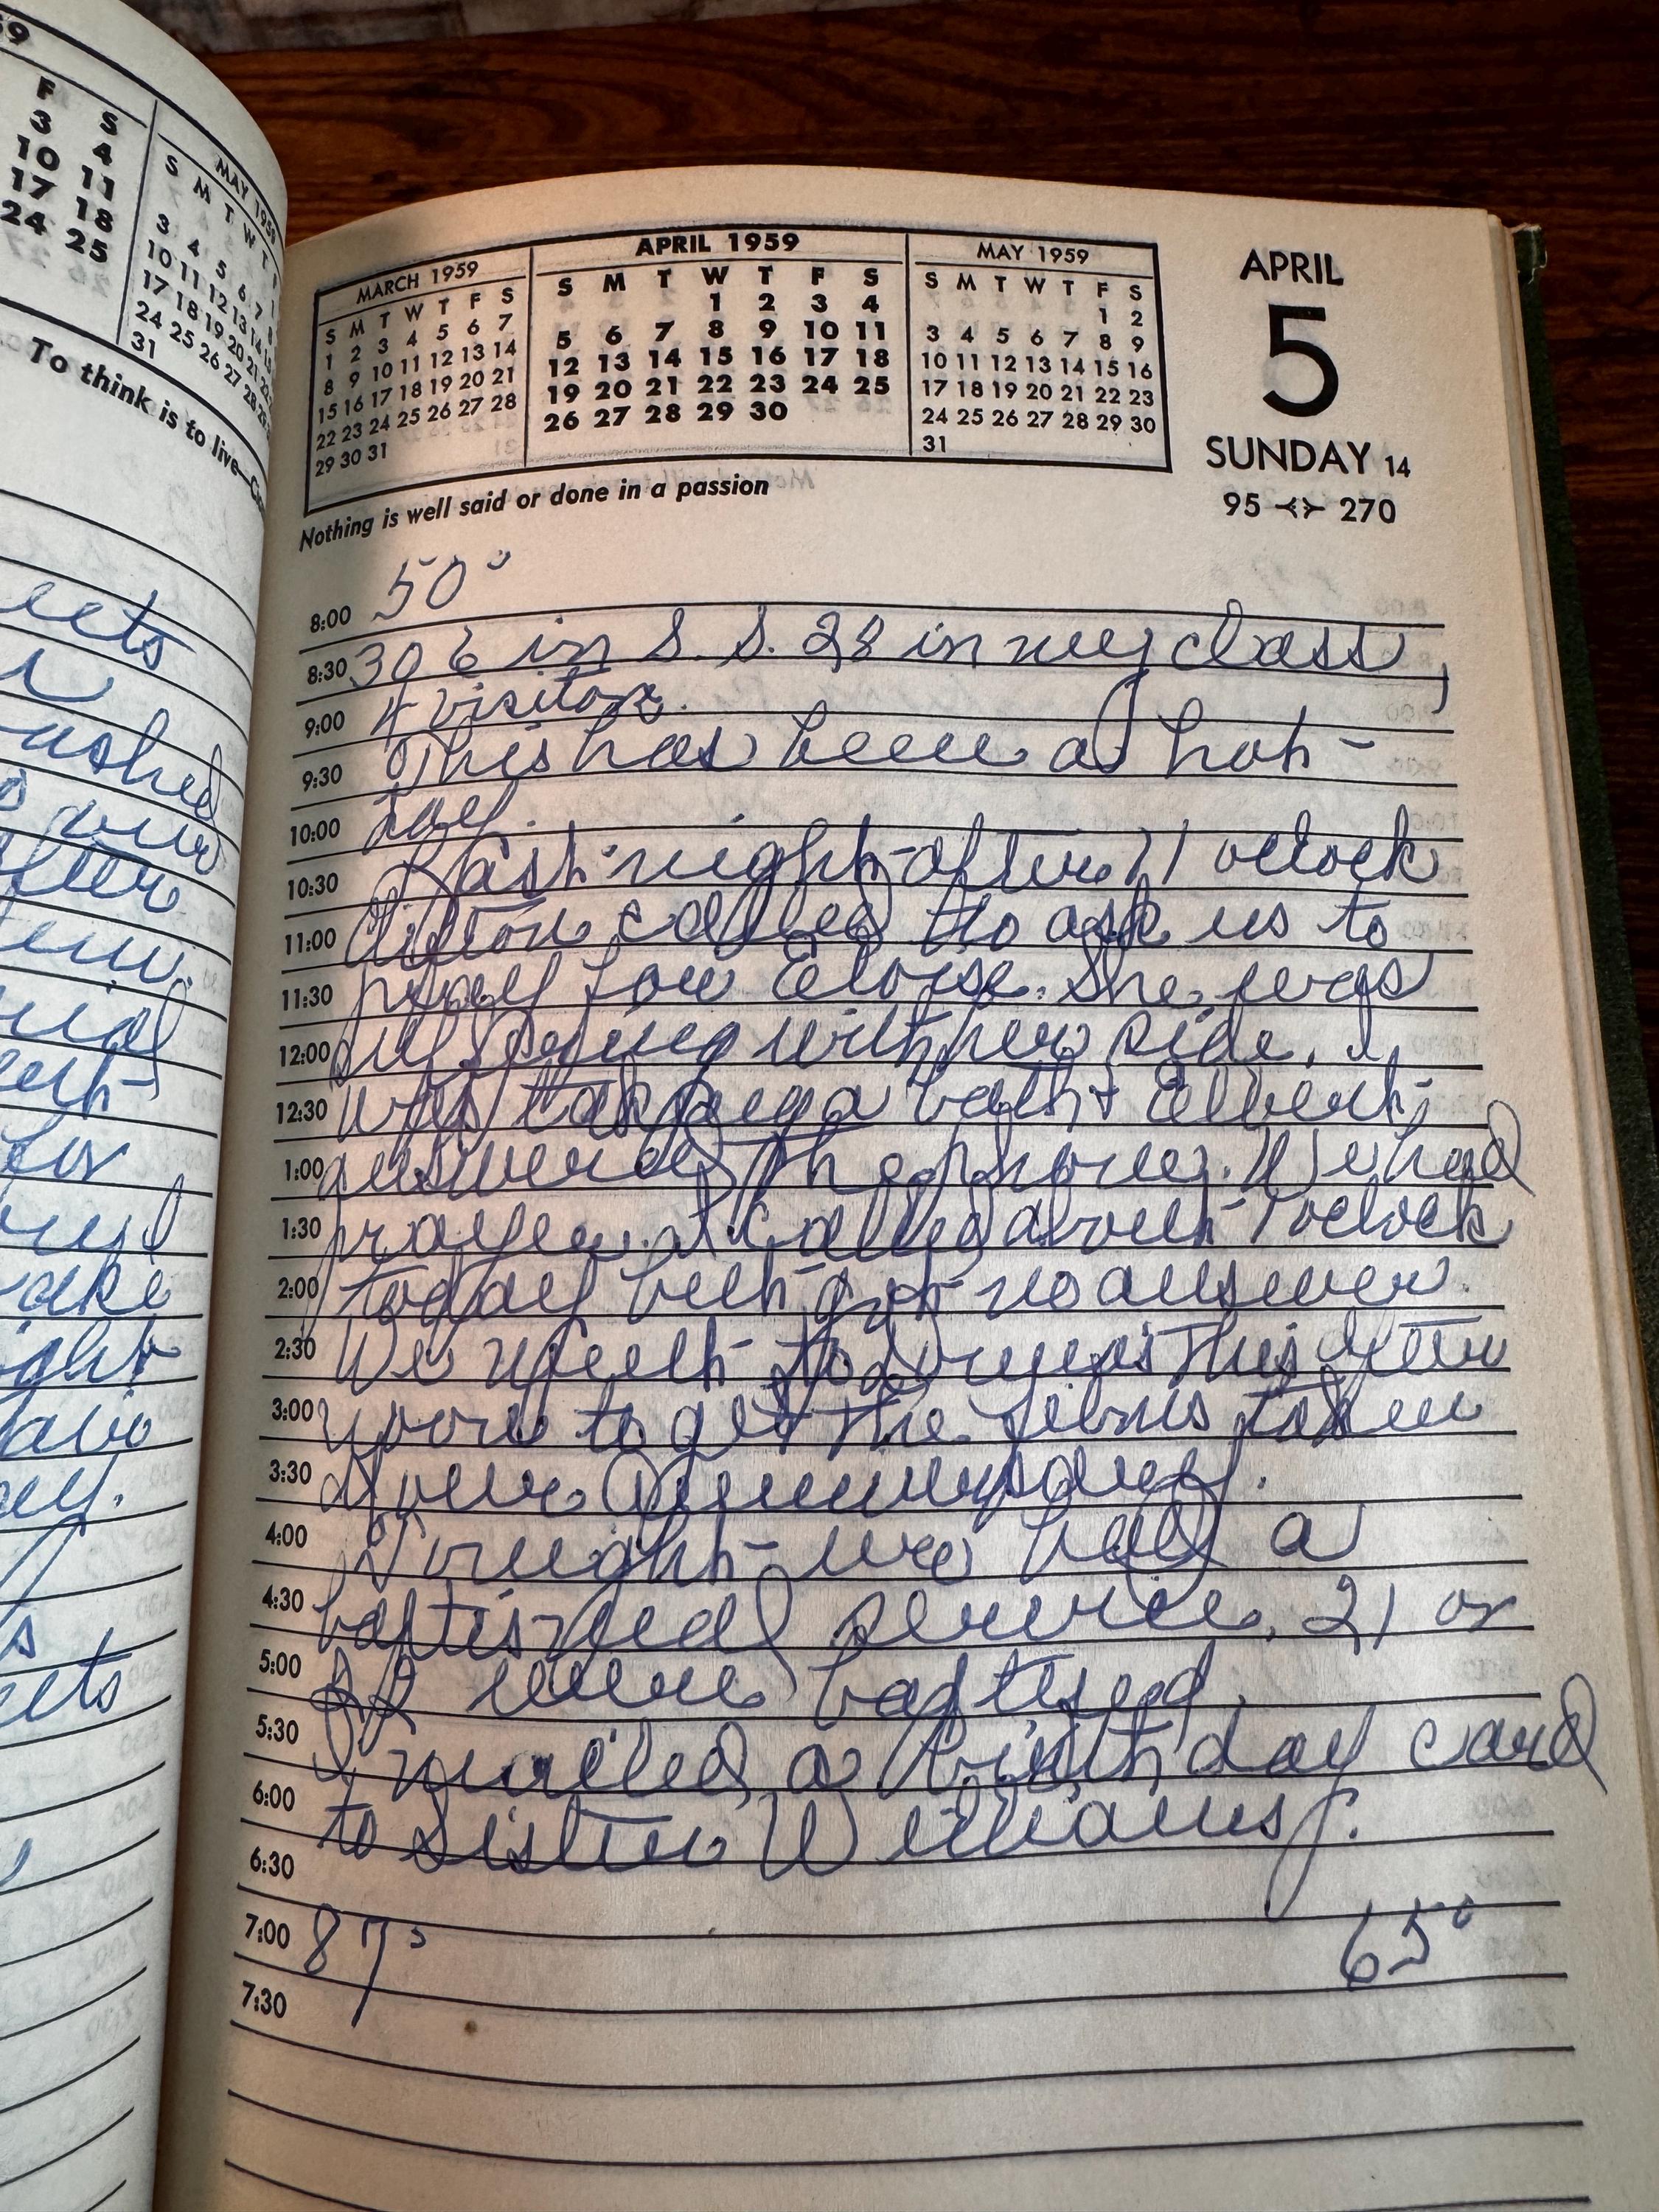 59
F S
3 4
10 11
17 18
24 25
MAY 1959
S M T W T F
1
3 4 5 6 7
10 11 12 13 14 15
17 18 19 20 21
24 25 26 27 28
31
To think is to live—
eets
ashed
after
for
ake
ight
ay.
eets
MARCH 1959
S M T W T F S
1 2 3 4 5 6 7
8 9 10 11 12 13 14
15 16 17 18 19 20 21
22 23 24 25 26 27 28
29 30 31
APRIL 1959
S M T W T F S
1 2 3 4
5 6 7 8 9 10 11
12 13 14 15 16 17 18
19 20 21 22 23 24 25
26 27 28 29 30
MAY 1959
S M T W T F S
1 2
3 4 5 6 7 8 9
10 11 12 13 14 15 16
17 18 19 20 21 22 23
24 25 26 27 28 29 30
31
APRIL
5
SUNDAY 14
95 270
Nothing is well said or done in a passion
8:00 50°
8:30 306 in S. S. 28 in my class,
9:00 4 visitors.
9:30 This has been a hot
10:00 day.
10:30 Last night after 11 oclock
11:00 called to ask us to
11:30 pray for Eloise. She was
12:00 suffering with her side. I
12:30 was taking a bath & Elbert
1:00 answered the phone. We had
1:30 prayer. I called about 1 oclock
2:00 today but got no answer.
2:30 We went to this after
3:00 noon to get the films taken
3:30
4:00 Tonight we had a
4:30 baptismal service. 21 or
5:00 22 were baptised.
5:30 I mailed a birthday card
6:00 to Sister Williams.
6:30
7:00 87° 65°
7:30